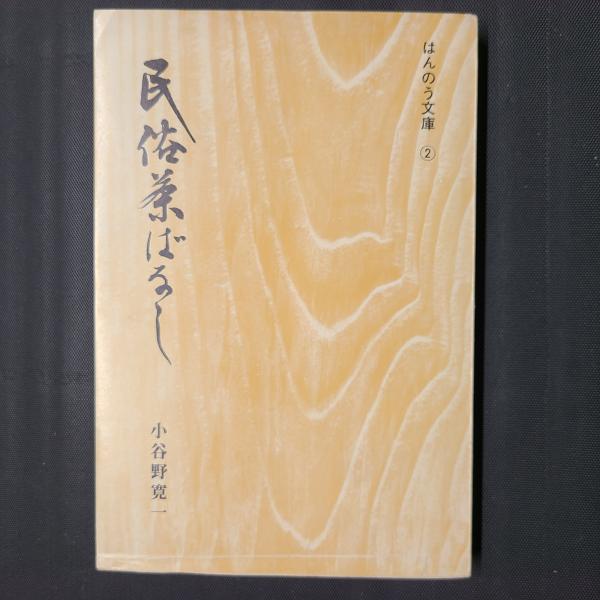 はんのう文庫 ②
民俗茶ばなし
小谷野寛一